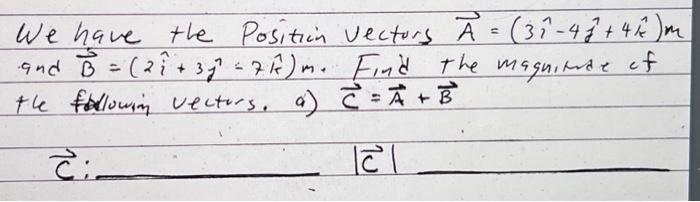 We have the Position vectors A⃗ = (3î - 4ĵ + 4k̂)m
and B⃗ = (2î + 3ĵ - 7k̂)m. Find the magnitude of
the following vectors. a) C⃗ = A⃗ + B⃗
C⃗: ________ |C⃗| ________